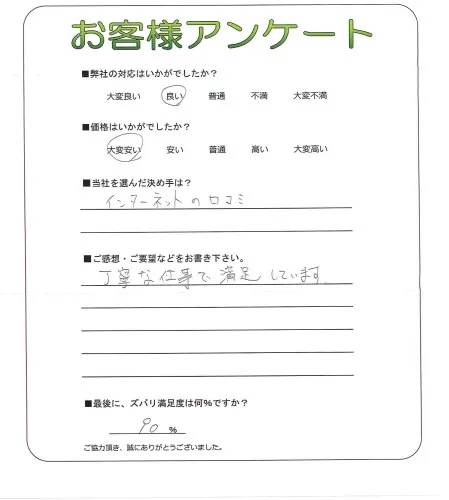 お客様アンケート
■弊社の対応はいかがでしたか？
大変良い 良い 普通 不満 大変不満
■価格はいかがでしたか？
大変安い 安い 普通 高い 大変高い
■当社を選んだ決め手は？
インターネットの口コミ
■ご感想・ご要望などをお書き下さい。
丁寧な仕事で満足しています。
■最後に、ズバリ満足度は何%ですか？
90 %
ご協力頂き、誠にありがとうございました。